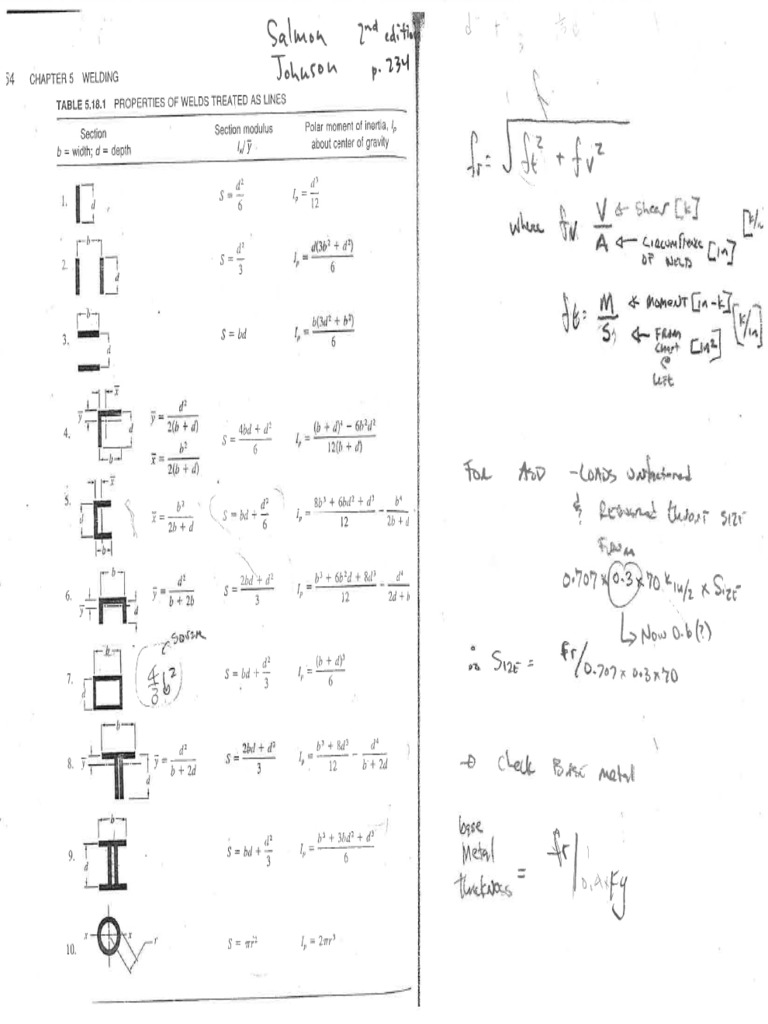 Salmon 2nd edition
Johnson p. 234
54 CHAPTER 5 WELDING
TABLE 5.18.1 PROPERTIES OF WELDS TREATED AS LINES
Section
b = width; d = depth
Section modulus
Iₓ/ȳ
Polar moment of inertia, Iₚ
about center of gravity
1. d S = d²/6 Iₚ = d³/12
2. b d S = d²/3 Iₚ = d(3b² + d²)/6
3. b d S = bd Iₚ = b(3d² + b²)/6
4. x̄ ȳ d b ȳ = d²/2(b + d) x̄ = b²/2(b + d) S = 4bd + d²/6 Iₚ = (b + d)⁴ − 6b²d²/12(b + d)
5. x̄ d b x̄ = b²/2b + d S = bd + d²/6 Iₚ = 8b³ + 6bd² + d³/12 − b⁴/2b + d
6. b ȳ d ȳ = d²/b + 2b S = 2bd + d²/3 Iₚ = b³ + 6b²d + 8d³/12 − d⁴/2d + b
7. b d 4/3 b² S = bd + d²/3 Iₚ = (b + d)³/6
8. b ȳ d ȳ = d²/b + 2d S = 2bd + d²/3 Iₚ = b³ + 8d³/12 − d⁴/b + 2d
9. b d S = bd + d²/3 Iₚ = b³ + 3bd² + d³/6
10. x x r S = πr² Iₚ = 2πr³
fr = √ft² + fv²
where fv V ← Shear [k]
A ← CIRCUMFRENCE [in]
OF WELD
ft = M ← MOMENT [in-k] [k/in]
S ← FROM [in²]
chart
@
left
FOR ASD - LOADS unfactored
& Required throat SIZE
FROM
0.707 x 0.3 x 70 k in/2 x SIZE
↳ Now 0.6(?)
∴ SIZE = fr/0.707 x 0.3 x 70
→ Check BASE metal
base
Metal
thickness = fr/0.4xFy